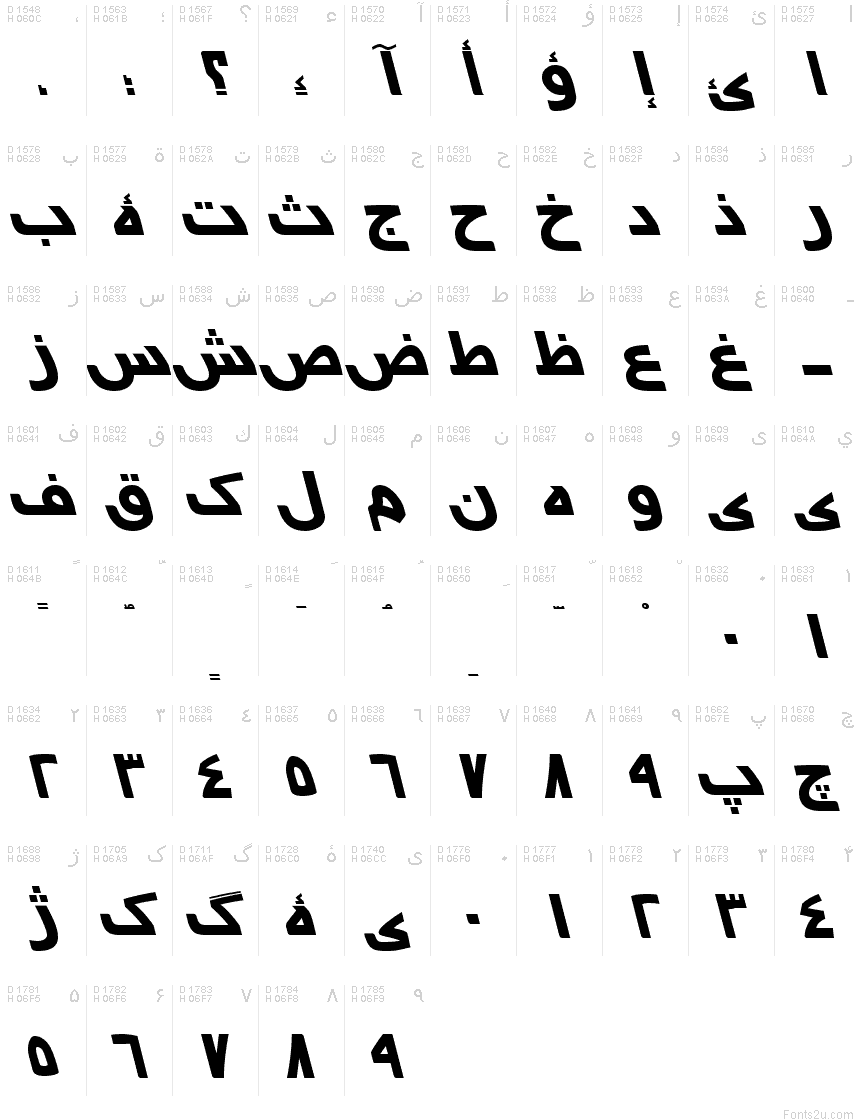 D 1548 D 1563 D 1567 D 1569 D 1570 D 1571 D 1572 D 1573 D 1574 D 1575
H 060C ، H 061B ؛ H 061F ؟ H 0621 ء H 0622 آ H 0623 أ H 0624 ؤ H 0625 إ H 0626 ئ H 0627 ا
، ؛ ؟ ء آ أ ؤ إ ئ ا
D 1576 D 1577 D 1578 D 1579 D 1580 D 1581 D 1582 D 1583 D 1584 D 1585
H 0628 ب H 0629 ة H 062A ت H 062B ث H 062C ج H 062D ح H 062E خ H 062F د H 0630 ذ H 0631 ر
ب ۀ ت ث ج ح خ د ذ ر
D 1586 D 1587 D 1588 D 1589 D 1590 D 1591 D 1592 D 1593 D 1594 D 1600
H 0632 ز H 0633 س H 0634 ش H 0635 ص H 0636 ض H 0637 ط H 0638 ظ H 0639 ع H 063A غ H 0640 ـ
ز س ش ص ض ط ظ ع غ ـ
D 1601 D 1602 D 1603 D 1604 D 1605 D 1606 D 1607 D 1608 D 1609 D 1610
H 0641 ف H 0642 ق H 0643 ك H 0644 ل H 0645 م H 0646 ن H 0647 ه H 0648 و H 0649 ى H 064A ي
ف ق ک ل م ن ه و ى ى
D 1611 D 1612 D 1613 D 1614 D 1615 D 1616 D 1617 D 1618 D 1632 D 1633
H 064B ً H 064C ٌ H 064D ٍ H 064E َ H 064F ُ H 0650 ِ H 0651 ّ H 0652 ْ H 0660 ٠ H 0661 ١
ً ٌ ٍ َ ُ ِ ّ ْ ٠ ١
D 1634 D 1635 D 1636 D 1637 D 1638 D 1639 D 1640 D 1641 D 1662 D 1670
H 0662 ٢ H 0663 ٣ H 0664 ٤ H 0665 ٥ H 0666 ٦ H 0667 ٧ H 0668 ٨ H 0669 ٩ H 067E پ H 0686 چ
٢ ٣ ٤ ٥ ٦ ٧ ٨ ٩ پ چ
D 1688 D 1705 D 1711 D 1728 D 1740 D 1776 D 1777 D 1778 D 1779 D 1780
H 0698 ژ H 06A9 ک H 06AF گ H 06C0 ۀ H 06CC ی H 06F0 ۰ H 06F1 ۱ H 06F2 ۲ H 06F3 ۳ H 06F4 ۴
ژ ک گ ۀ ی ۰ ۱ ۲ ۳ ٤
D 1781 D 1782 D 1783 D 1784 D 1785
H 06F5 ۵ H 06F6 ۶ H 06F7 ۷ H 06F8 ۸ H 06F9 ۹
٥ ٦ ۷ ۸ ۹
Fonts2u.com